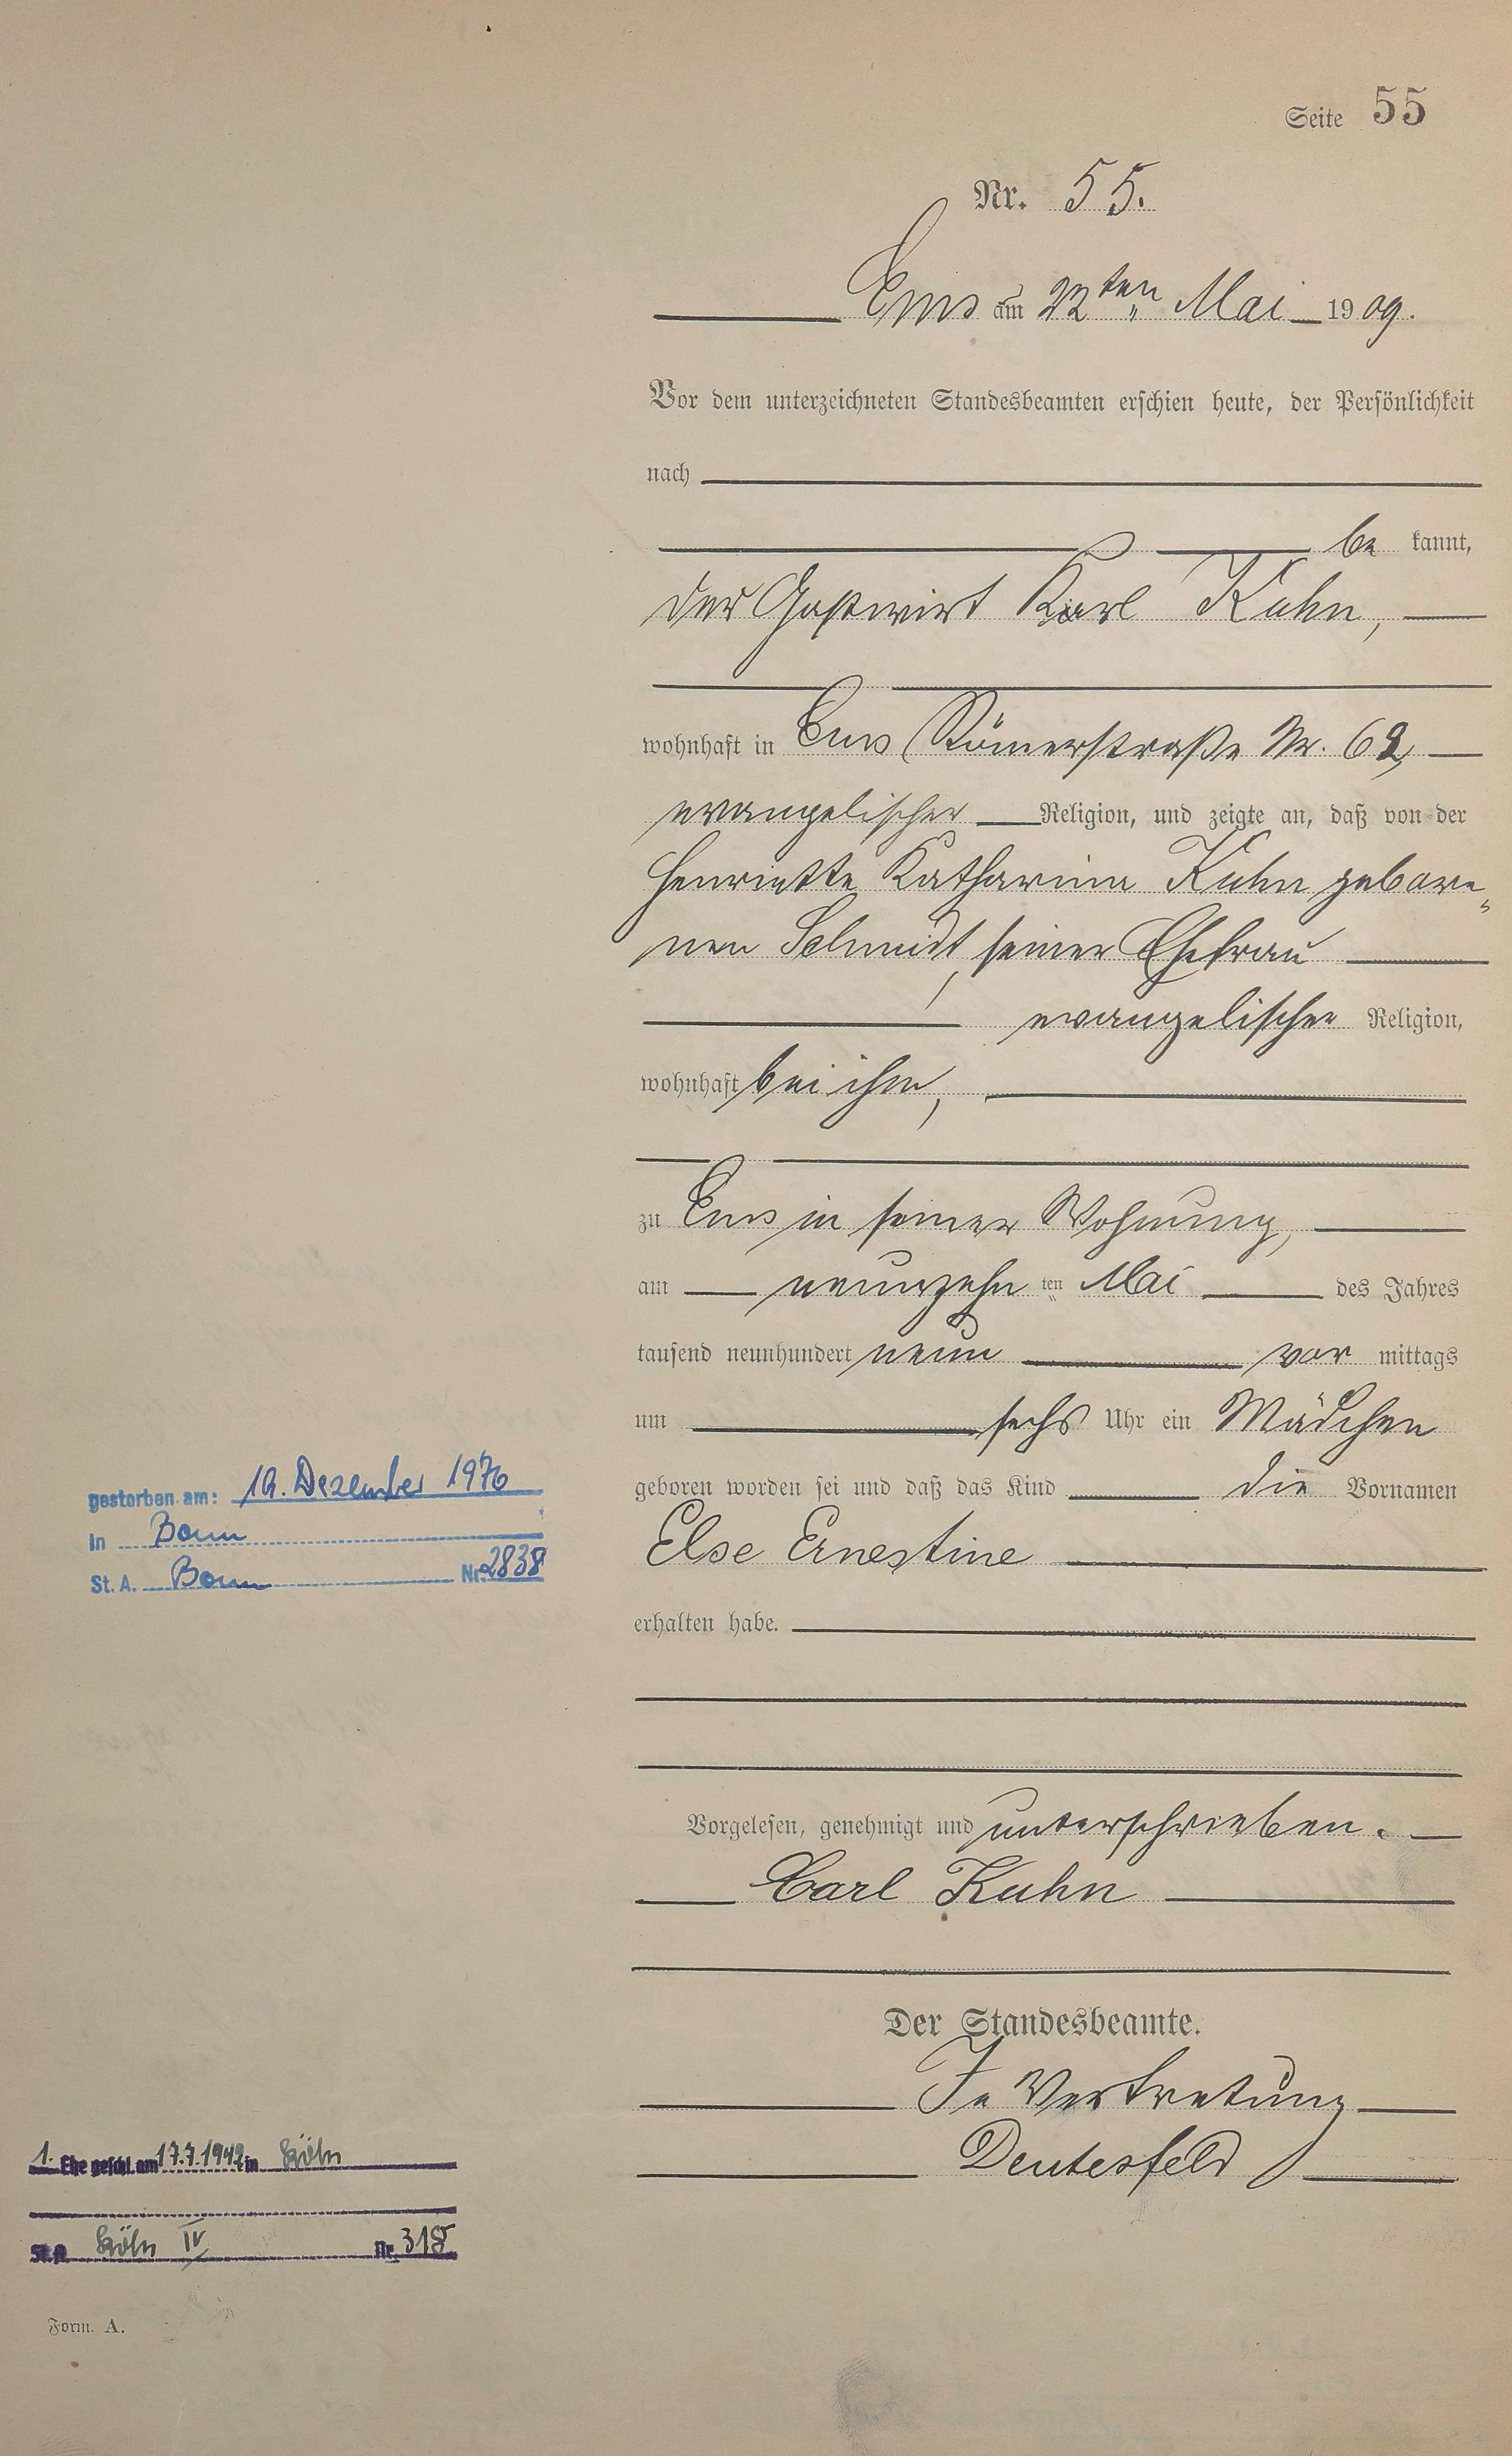 Seite 55
Nr. 55.
Ems am 22ten Mai 1909.
Vor dem unterzeichneten Standesbeamten erschien heute, der Persönlichkeit
nach
be kannt,
der Gastwirt Karl Kuhn,
wohnhaft in Ems Römerstraße Nr. 62,
evangelischer Religion, und zeigte an, daß von der
Henriette Katharina Kuhn gebore„
nen Schmidt, seiner Ehefrau
evangelischer Religion,
wohnhaft bei ihm,
zu Ems in seiner Wohnung,
am neunzehn ten Mai des Jahres
tausend neunhundert neun vor mittags
um sechs Uhr ein Mädchen
geboren worden sei und daß das Kind die Vornamen
Else Ernestine
erhalten habe.
Vorgelesen, genehmigt und unterschrieben.
Carl Kuhn
Der Standesbeamte.
In Vertretung
Deutesfeld
gestorben am: 19. Dezember 1976
in Bonn
St. A. Bonn Nr. 2838
1. Ehe geschl. am 17.7.1942 in Köln
St. A. Köln IV Nr. 315
Form. A.